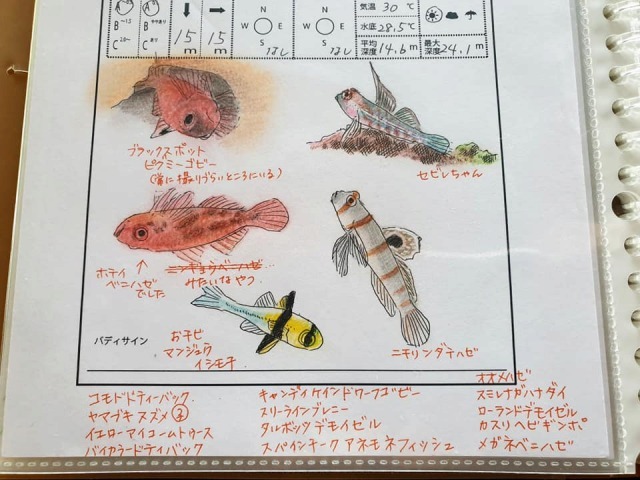 A A 気温 30 ℃
B ~15 B ややあり N N 水底 28.5 ℃
C 20~ C あり 15 m 15 m W E S なし W E S なし 平均深度 14.6 m 最大深度 24.1 m
ブラックスポット
ピグミーゴビー
(常に撮りづらいところにいる)
セビレちゃん
ホテイ
ベニハゼ
でした
ニンギョウベニハゼ…
みたいなやつ
おチビ
マンジュウ
イシモチ
ニチリンダテハゼ
バディサイン
コモドドティーバック
ヤマブキスズメ②
イエローアイコームトゥース
バイカラードティバック
キャンディケインドワーフゴビー
スリーラインブレニー
タルボッツデモイゼル
スパインチークアネモネフィッシュ
オオメハゼ
スミレナガハナダイ
ローランドデモイゼル
カスリヘビギンポ
メガネベニハゼ